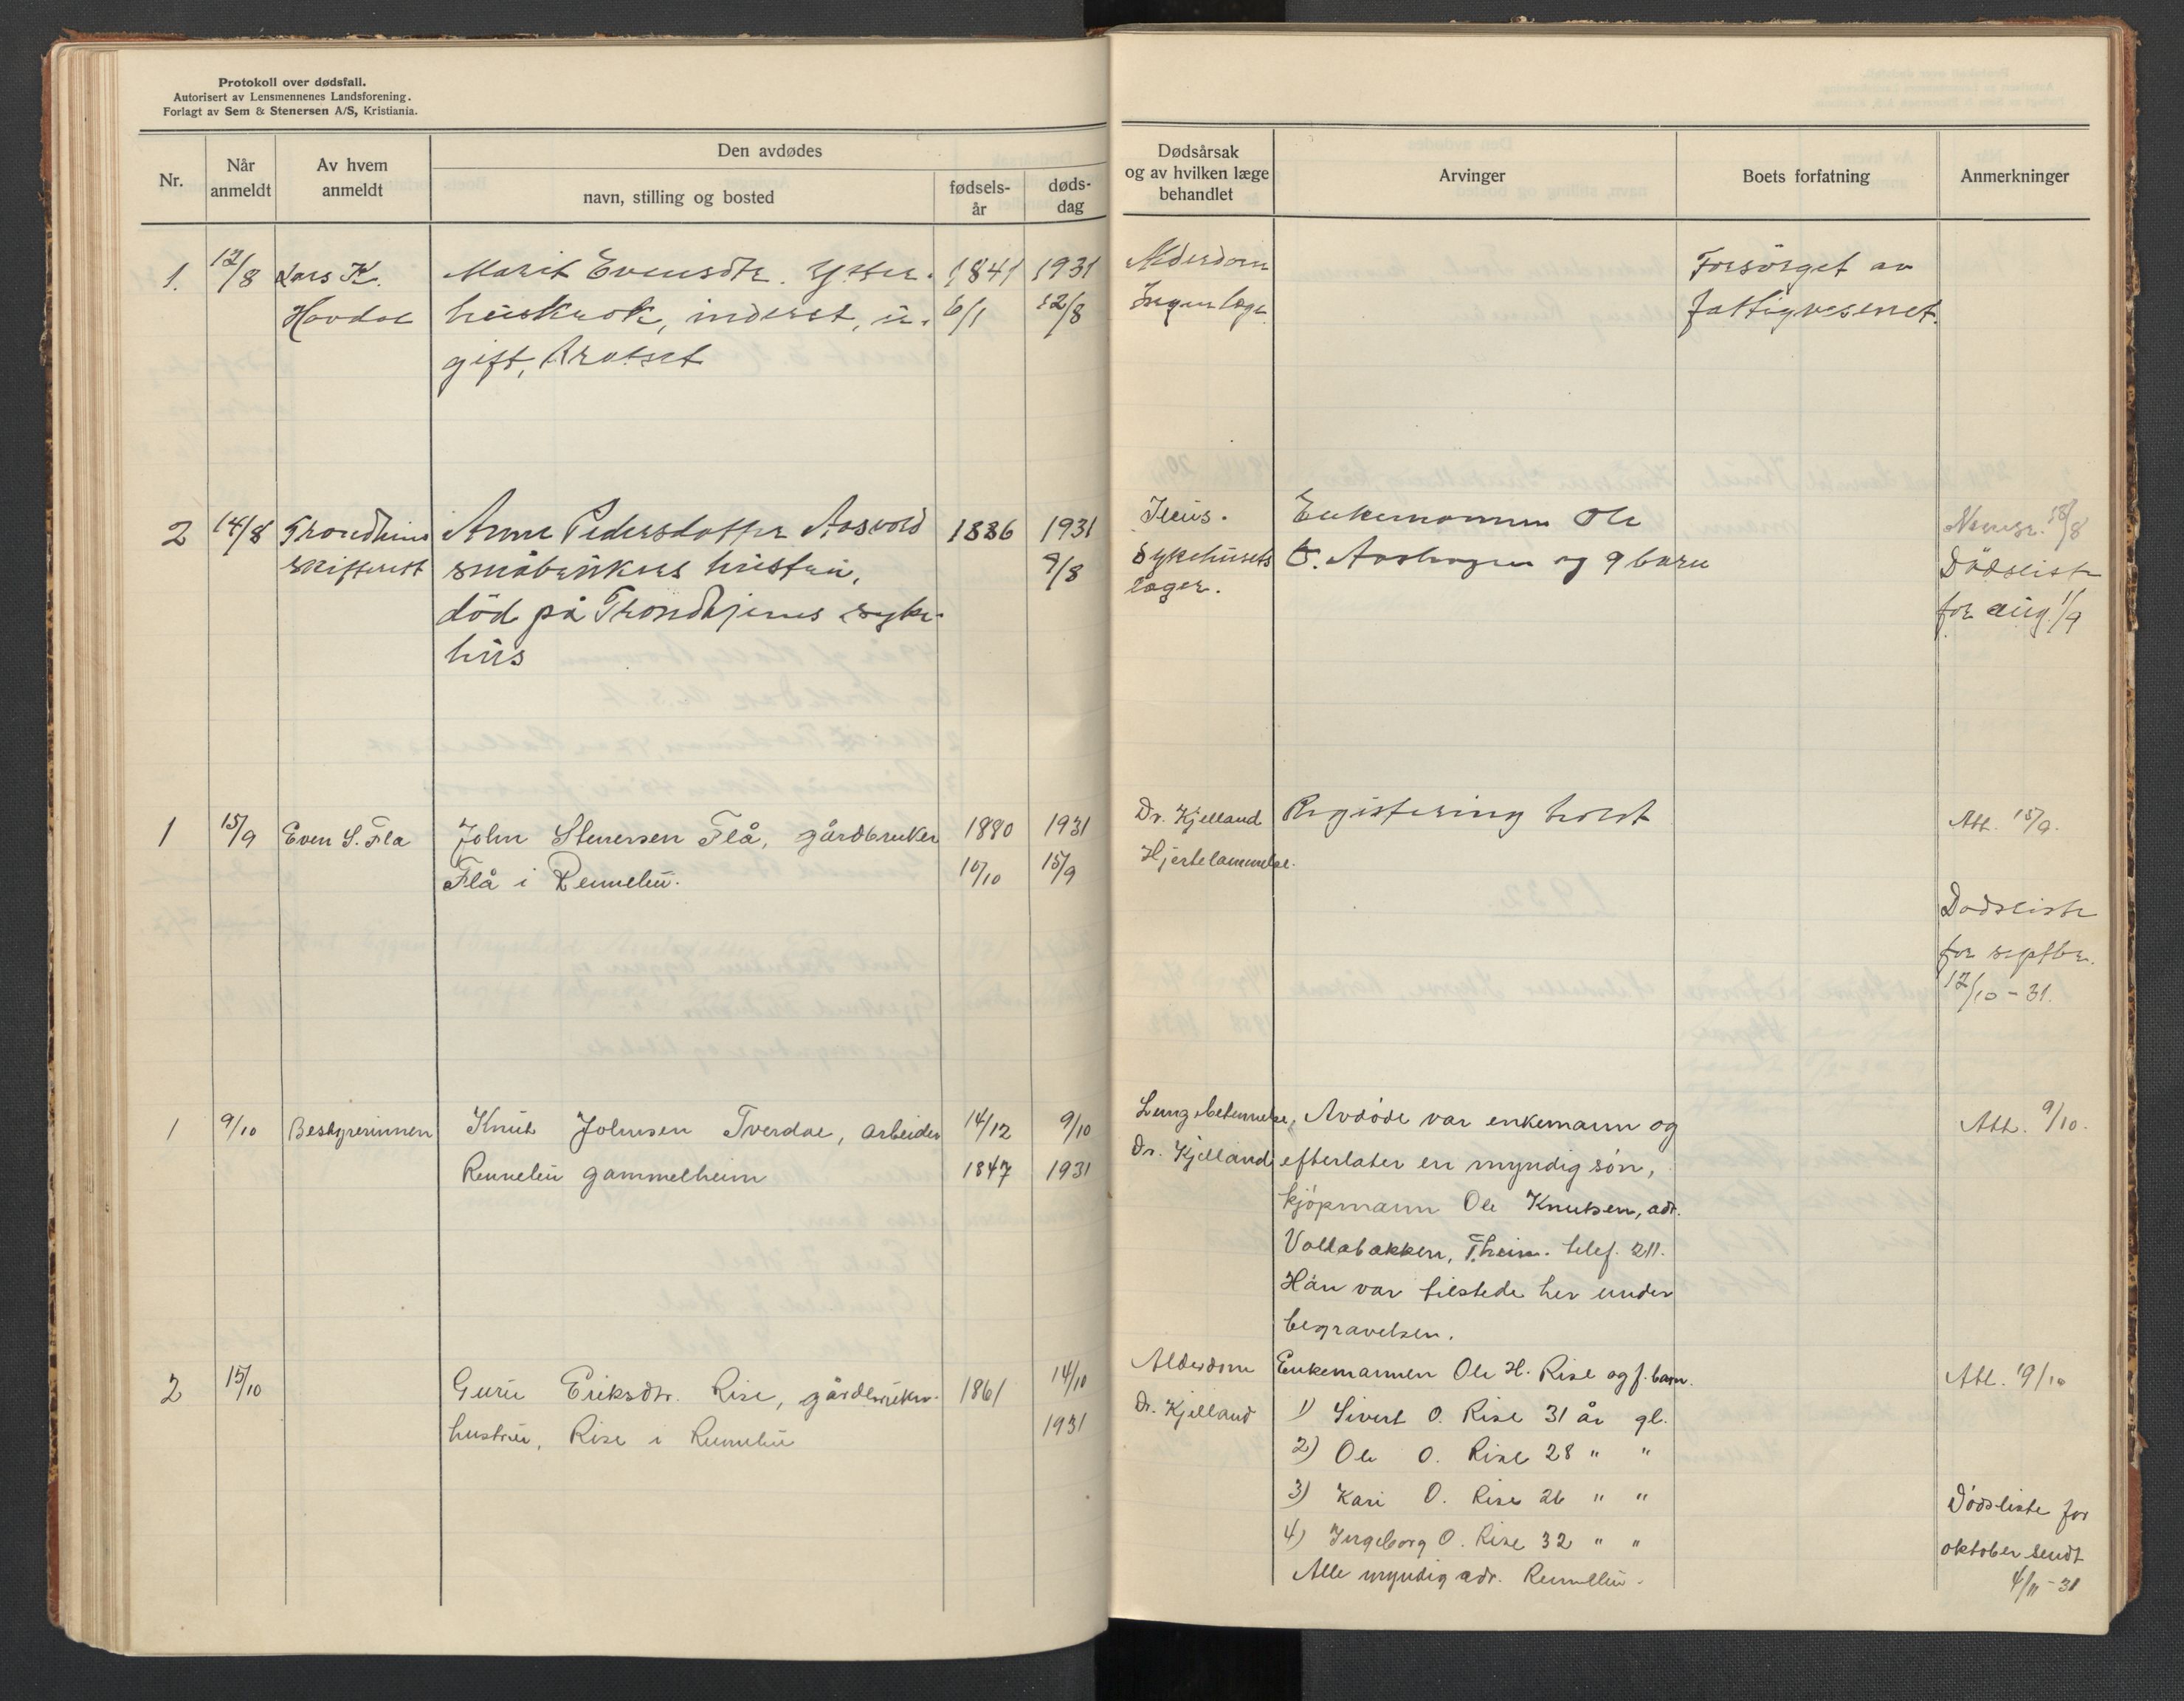 Protokoll over dødsfall.
Autorisert av Lensmennenes Landsforening.
Forlagt av Sem & Stenersen A/S, Kristiania.
Nr.
Når anmeldt
Av hvem anmeldt
Den avdødes
navn, stilling og bosted
fødsels-år
døds-dag
Dødsårsak og av hvilken læge behandlet
Arvinger
Boets forfatning
Anmerkninger
1. 12/8 Lars K. Marit Evensdtr. Ytter- 1841 1931 Alderdom Forsörget av
Havdal huskrok, inderst, u- 6/1 12/8 Ingen læge fattigvesenet.
gift,
2 14/8 Trondheim Anne Pedersdatter 1886 1931 Ileus. Enkemannen Ole
skifterett småbrukers hustru, 9/8 Sykehusets og 9 barn Dödsliste
död på Trondhjems syke- læger. for aug. 1/9
hus
1 15/9 Even S. Flå John Stenersen Flå, gårdbruker 1880 1931 Dr. Kjelland Registrering holdt Att. 15/9.
Flå i Rennebu. 10/10 15/9 Hjertelammelse.
Dødsliste
for septbr.
12/10 - 31.
1 9/10 Bestyrerinnen Knut Johnsen Tverdal, arbeider 14/12 9/10 Lungebetennelse, Avdöde var enkemann og Att. 9/10.
Rennebu gammelheim 1847 1931 Dr. Kjelland efterlater en myndig sön,
kjöpmann Ole Knutsen, adr.
Vollabakken, T.heim. telef. 211.
Han var tilstede her under
begravelsen.
2 15/10 Guru Eriksdtr. Rise, gårdbruker- 1861 14/10 Alderdom Enkemannen Ole H. Rise og f. barn. Att. 19/10
hustru, Rise i Rennebu 1931 Dr. Kjelland 1) Sivert O. Rise 31 år gl.
2) Ole O. Rise 28 " "
3) Kari O. Rise 26 " "
4) Ingeborg O. Rise 32 " "
Alle myndig adr. Rennebu.
Dödsliste for
oktober sendt
4/11 - 31